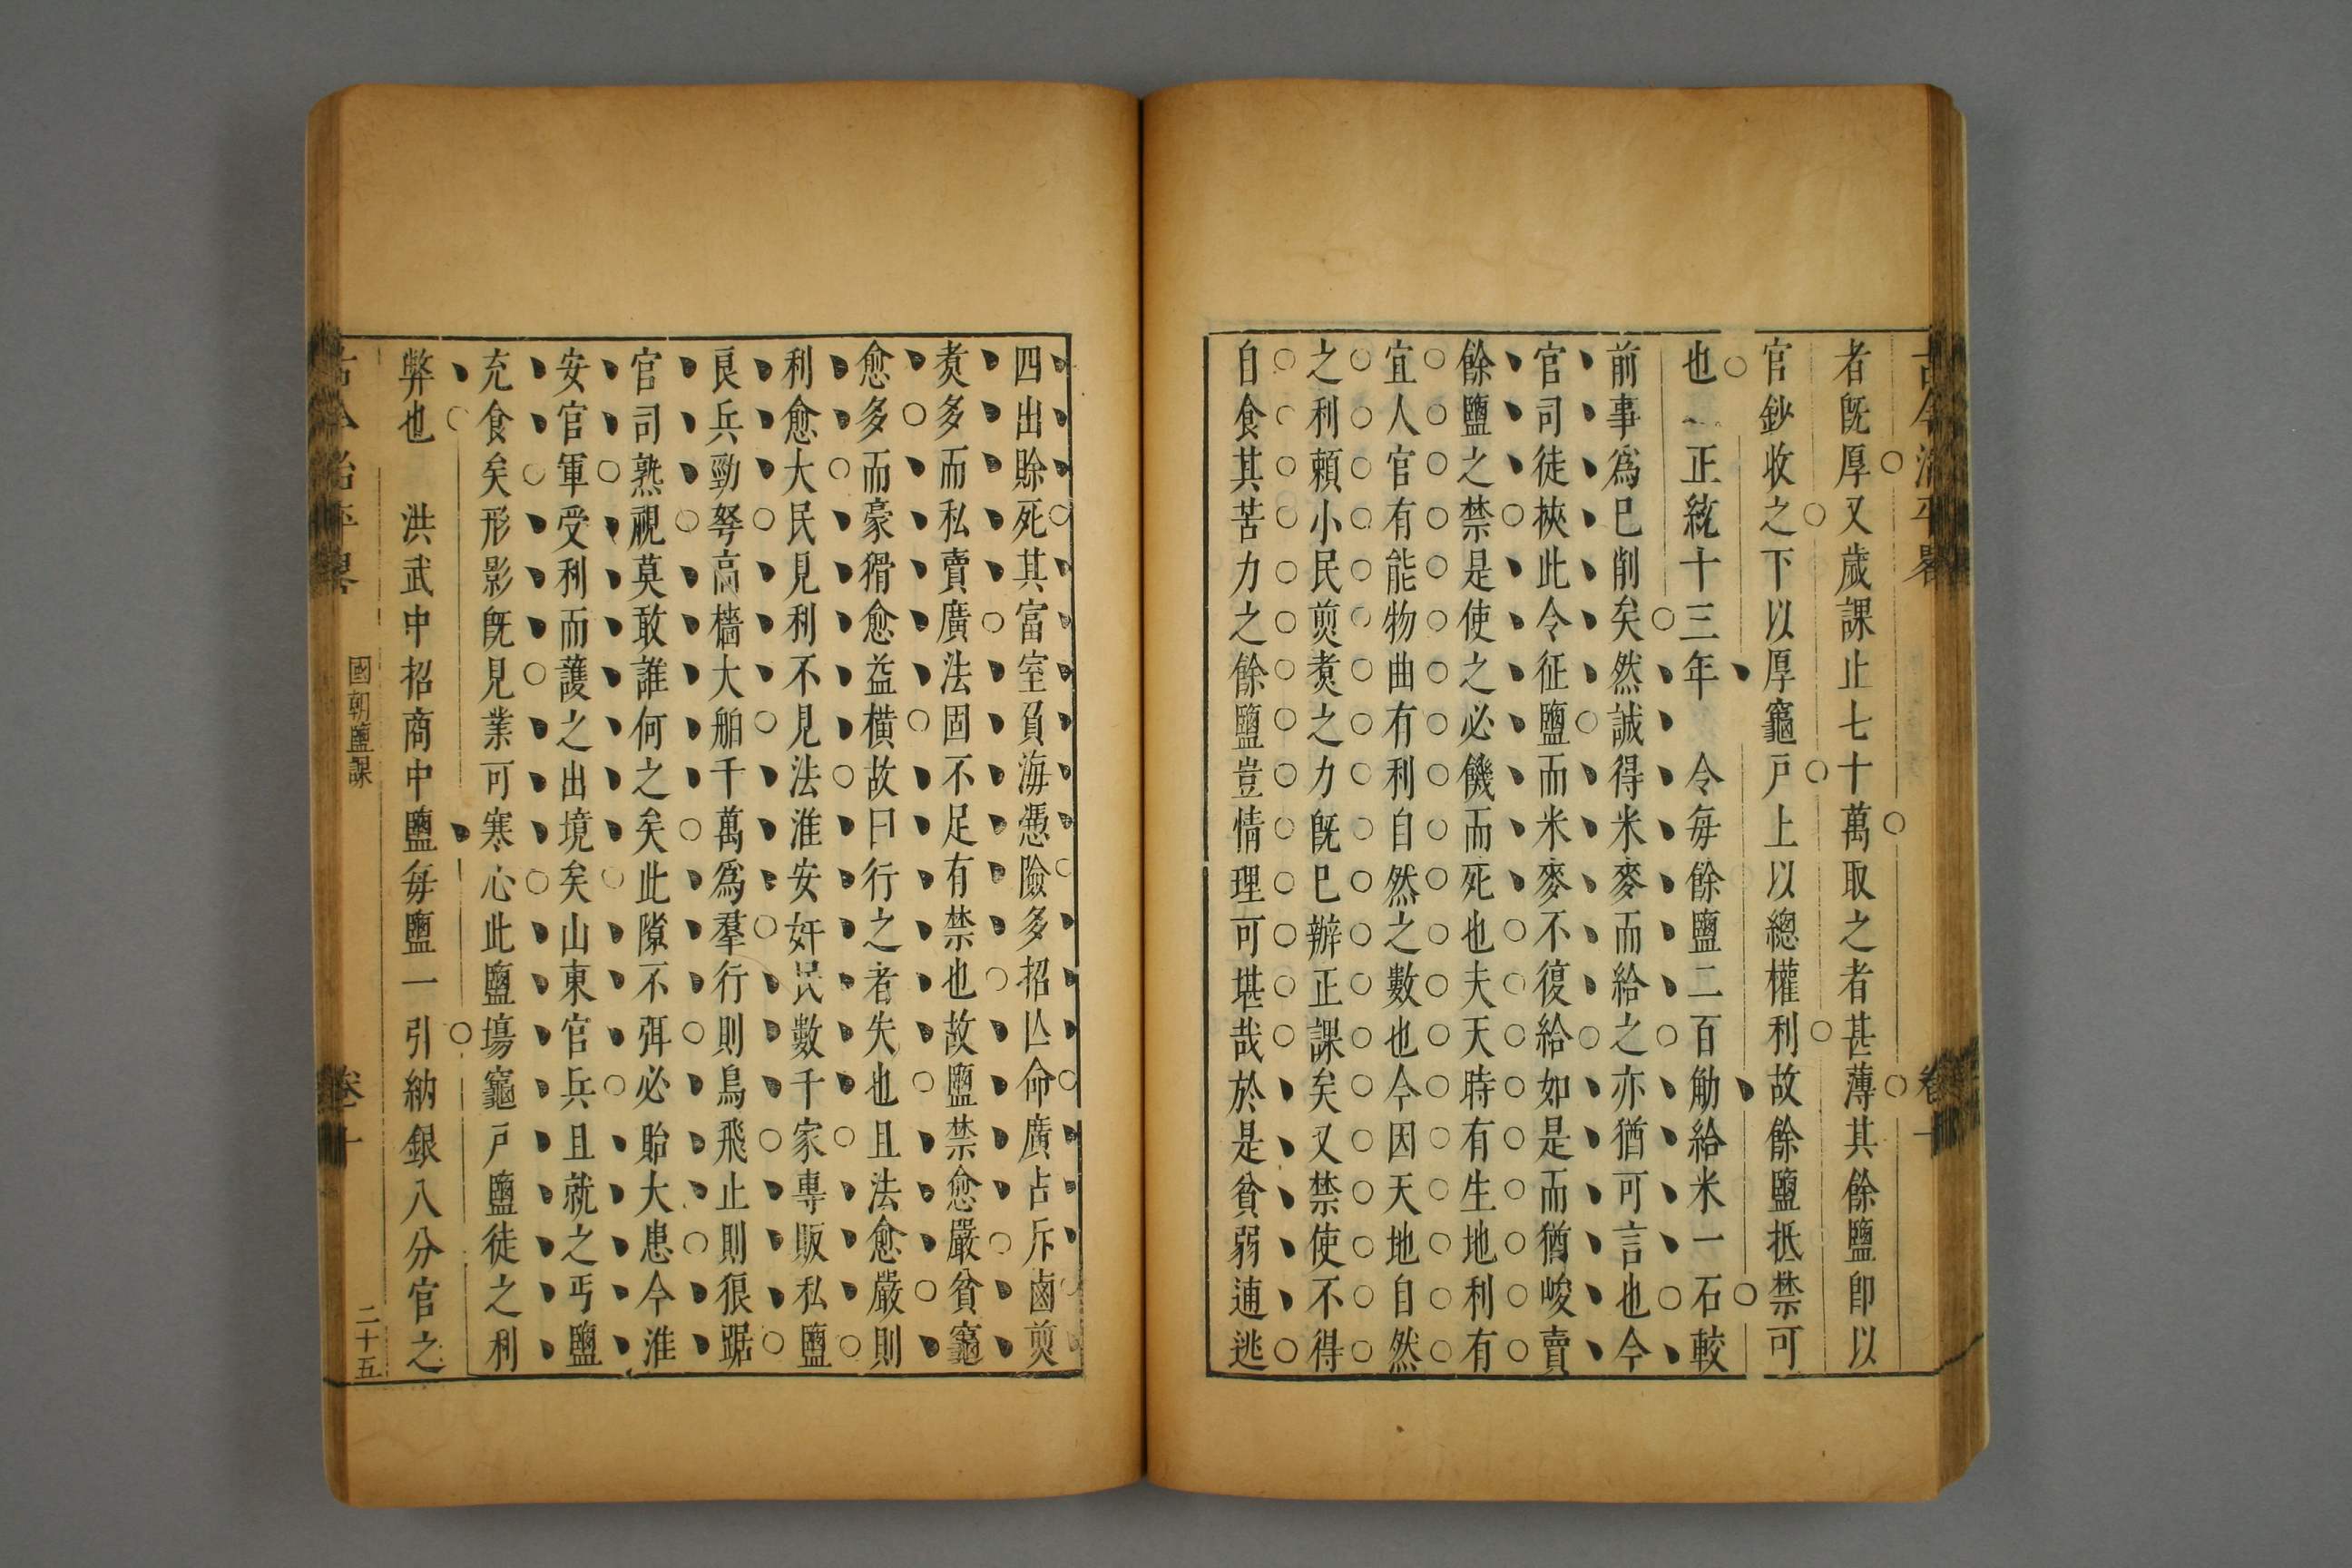 古今治平畧 卷十
者旣厚又歲課止七十萬取之者甚薄其餘鹽卽以
官鈔收之下以厚竈戸上以總權利故餘鹽抵禁可
也 正統十三年 令毎餘鹽二百觔給米一石較
前事爲已削矣然誠得米麥而給之亦猶可言也今
官司徒梜此令征鹽而米麥不復給如是而猶峻賣
餘鹽之禁是使之必饑而死也夫天時有生地利有
宜人官有能物曲有利自然之數也今因天地自然
之利賴小民煎煑之力旣已辦正課矣又禁使不得
自食其苦力之餘鹽豈情理可堪哉於是貧弱逋逃
四出賖死其富室負海憑險多招亾命廣占斥鹵煎
煑多而私賣廣法固不足有禁也故鹽禁愈嚴貧竈
愈多而豪猾愈益橫故曰行之者失也且法愈嚴則
利愈大民見利不見法淮安奸民數千家專販私鹽
良兵勁弩高檣大舶千萬爲羣行則鳥飛止則狠踞
官司熟視莫敢誰何之矣此隙不弭必貽大患今淮
安官軍受利而護之出境矣山東官兵且就之丐鹽
充食矣形影旣見業可寒心此鹽塲竈戸鹽徒之利
弊也 洪武中招商中鹽毎鹽一引納銀八分官之
古今治平畧 國朝鹽課 卷十 二十五